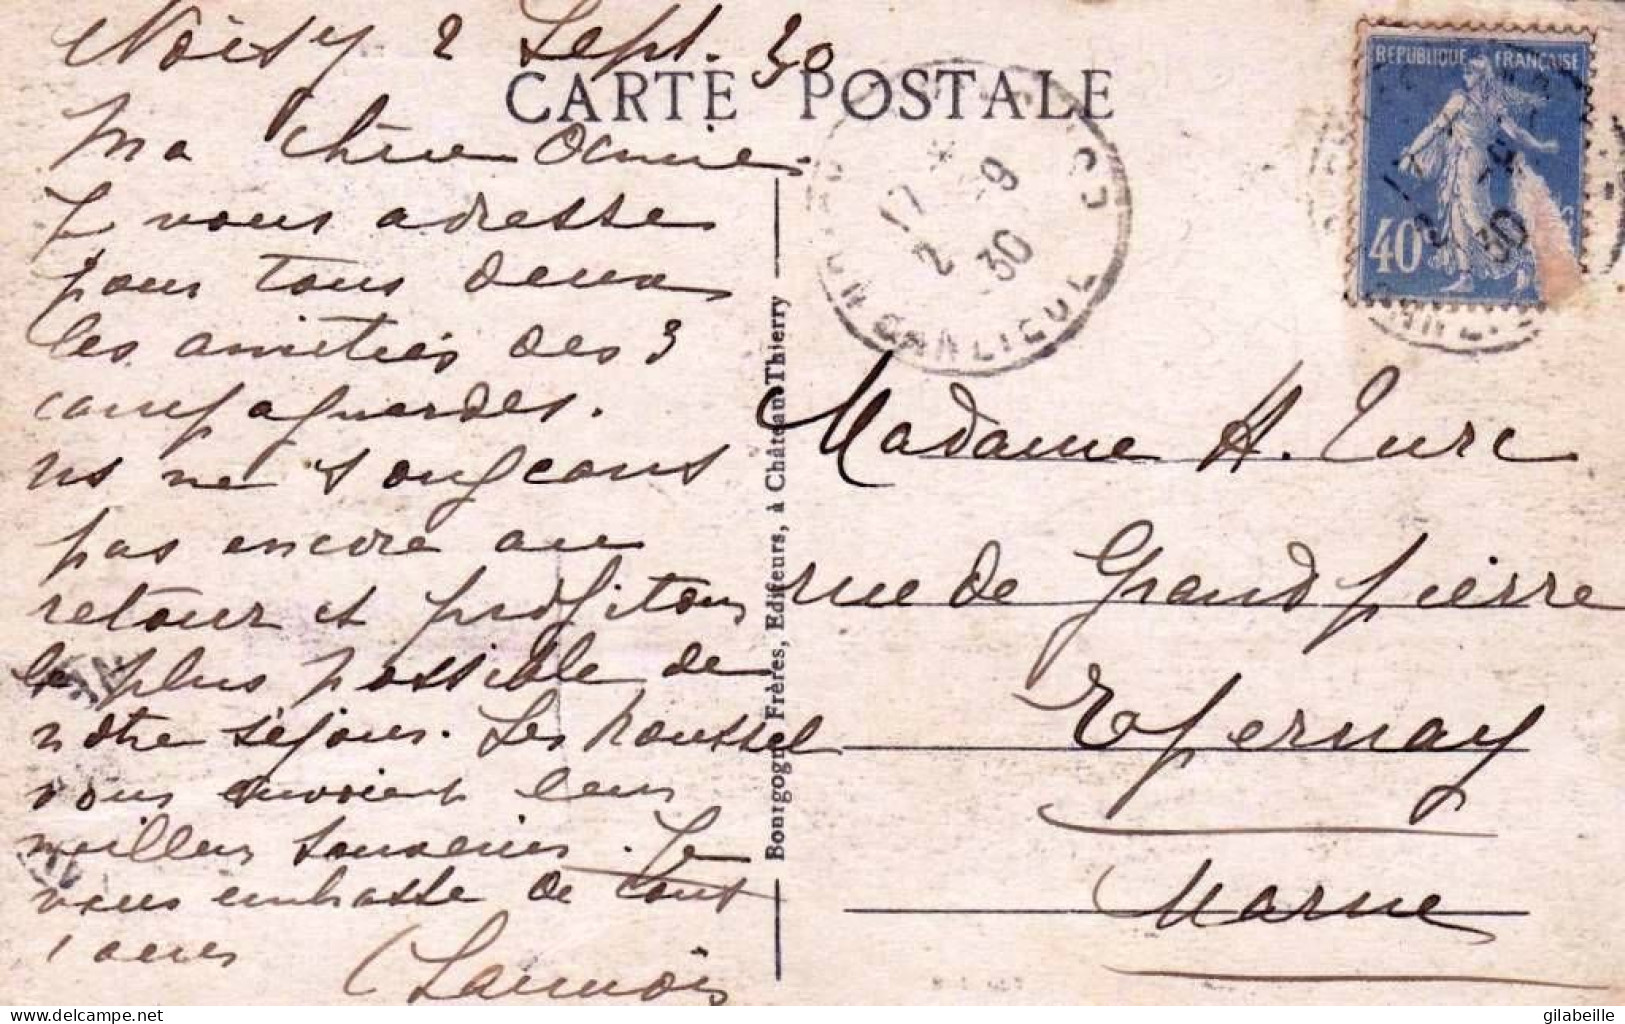 Noisy 2 Sept. 30
CARTE POSTALE
Ma chère
Je vous adresse
pour tous deux
les amitiés des 3
campagnardes.
Ns ne songeons
pas encore au
retour et profitons
le plus possible de
notre séjour. Les Roussel
vous envoient leurs
meilleurs souvenirs. Je
vous embrasse de tout
cœur
Bourgogne Frères, Editeurs, à Château-Thierry
17 *
2 -9
30
REPUBLIQUE FRANÇAISE
40 c
Madame H. Turc
rue de Grandpierre
Epernay
Marne
https://www.delcampe.net
gilabeille